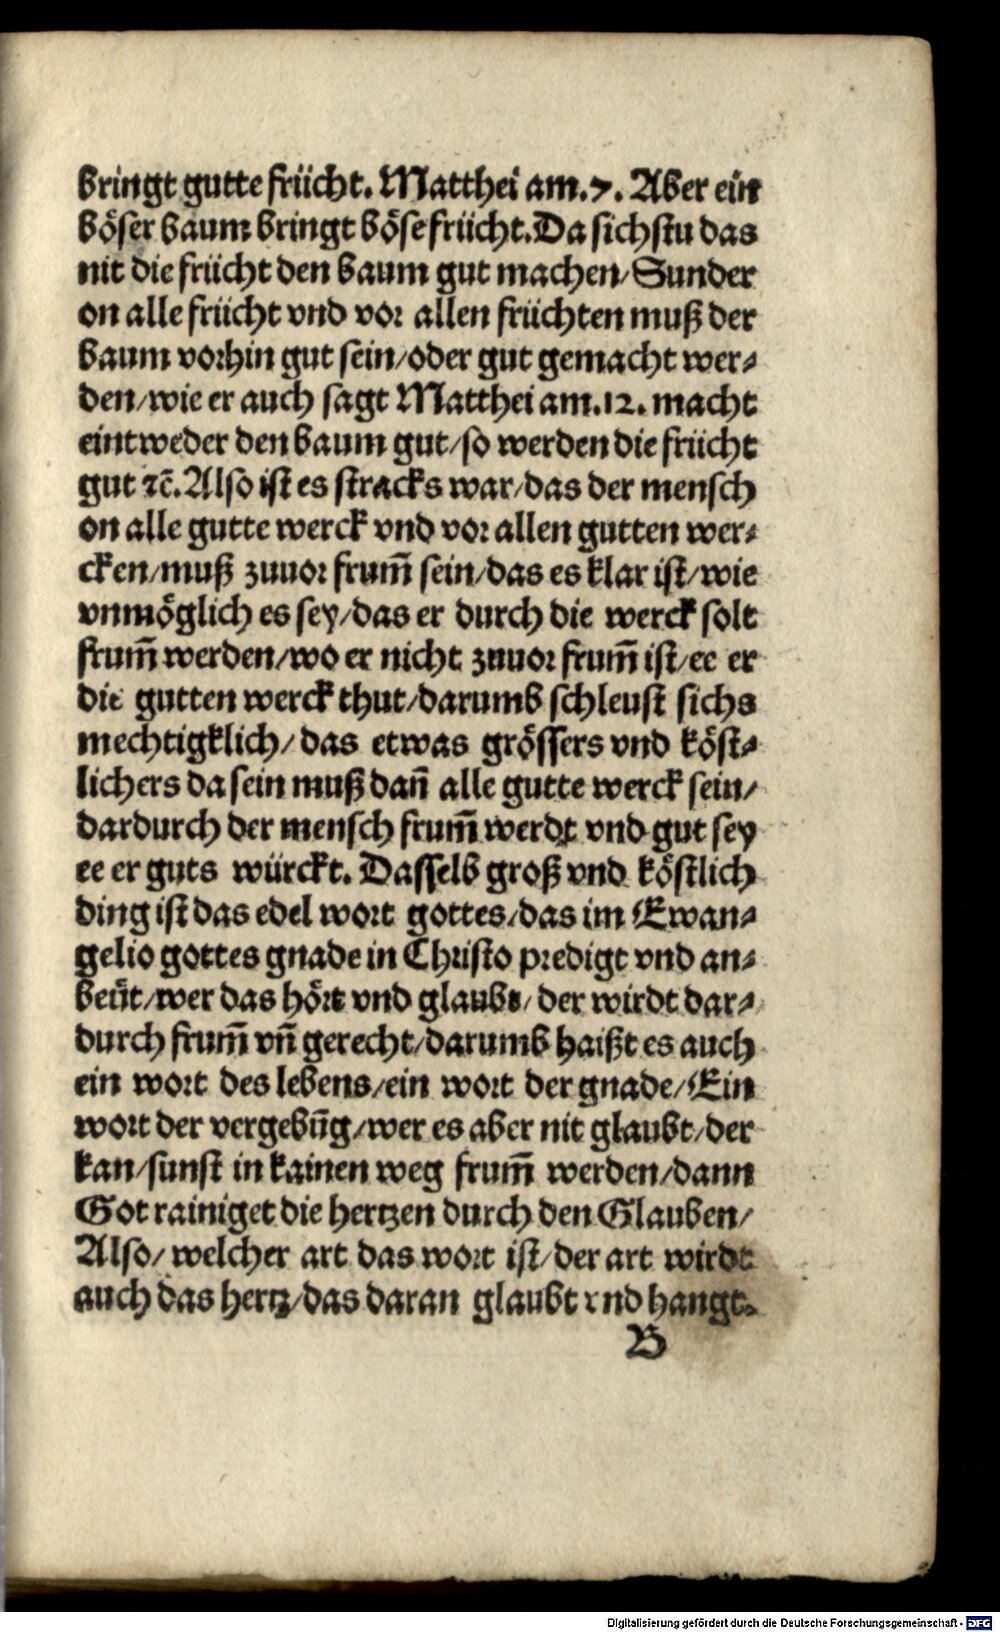 bringt gutte frücht. Matthei am.7. Aber ein
böser baum bringt böse frücht. Da sichstu das
nit die frücht den baum gut machen/Sunder
on alle frücht vnd vor allen früchten muß der
baum vorhin gut sein/oder gut gemacht wer⸗
den/wie er auch sagt Matthei am.12. macht
eintweder den baum gut/so werden die frücht
gut ꝛc̄. Also ist es stracks war/das der mensch
on alle gutte werck vnd vor allen gutten wer⸗
cken/muß zuuor frum̄ sein/das es klar ist/wie
vnmöglich es sey/das er durch die werck solt
frum̄ werden/wo er nicht zuuor frum̄ ist/ee er
die gutten werck thut/darumb schleust sichs
mechtigklich/das etwas grössers vnd köst⸗
lichers da sein muß dan̄ alle gutte werck sein/
dardurch der mensch frum̄ werdt vnd gut sey
ee er guts würckt. Dasselb groß vnd köstlich
ding ist das edel wort gottes/das im Ewan⸗
gelio gottes gnade in Christo predigt vnd an⸗
beüt/wer das hört vnd glaubt/der wirdt dar⸗
durch frum̄ vn̄ gerecht/darumb haißt es auch
ein wort des lebens/ein wort der gnade/Ein
wort der vergebūg/wer es aber nit glaubt/der
kan/sunst in kainen weg frum̄ werden/dann
Got rainiget die hertzen durch den Glauben/
Also/welcher art das wort ist/der art wirdt
auch das hertz/das daran glaubt vnd hangt.
B
Digitalisierung gefördert durch die Deutsche Forschungsgemeinschaft - DFG